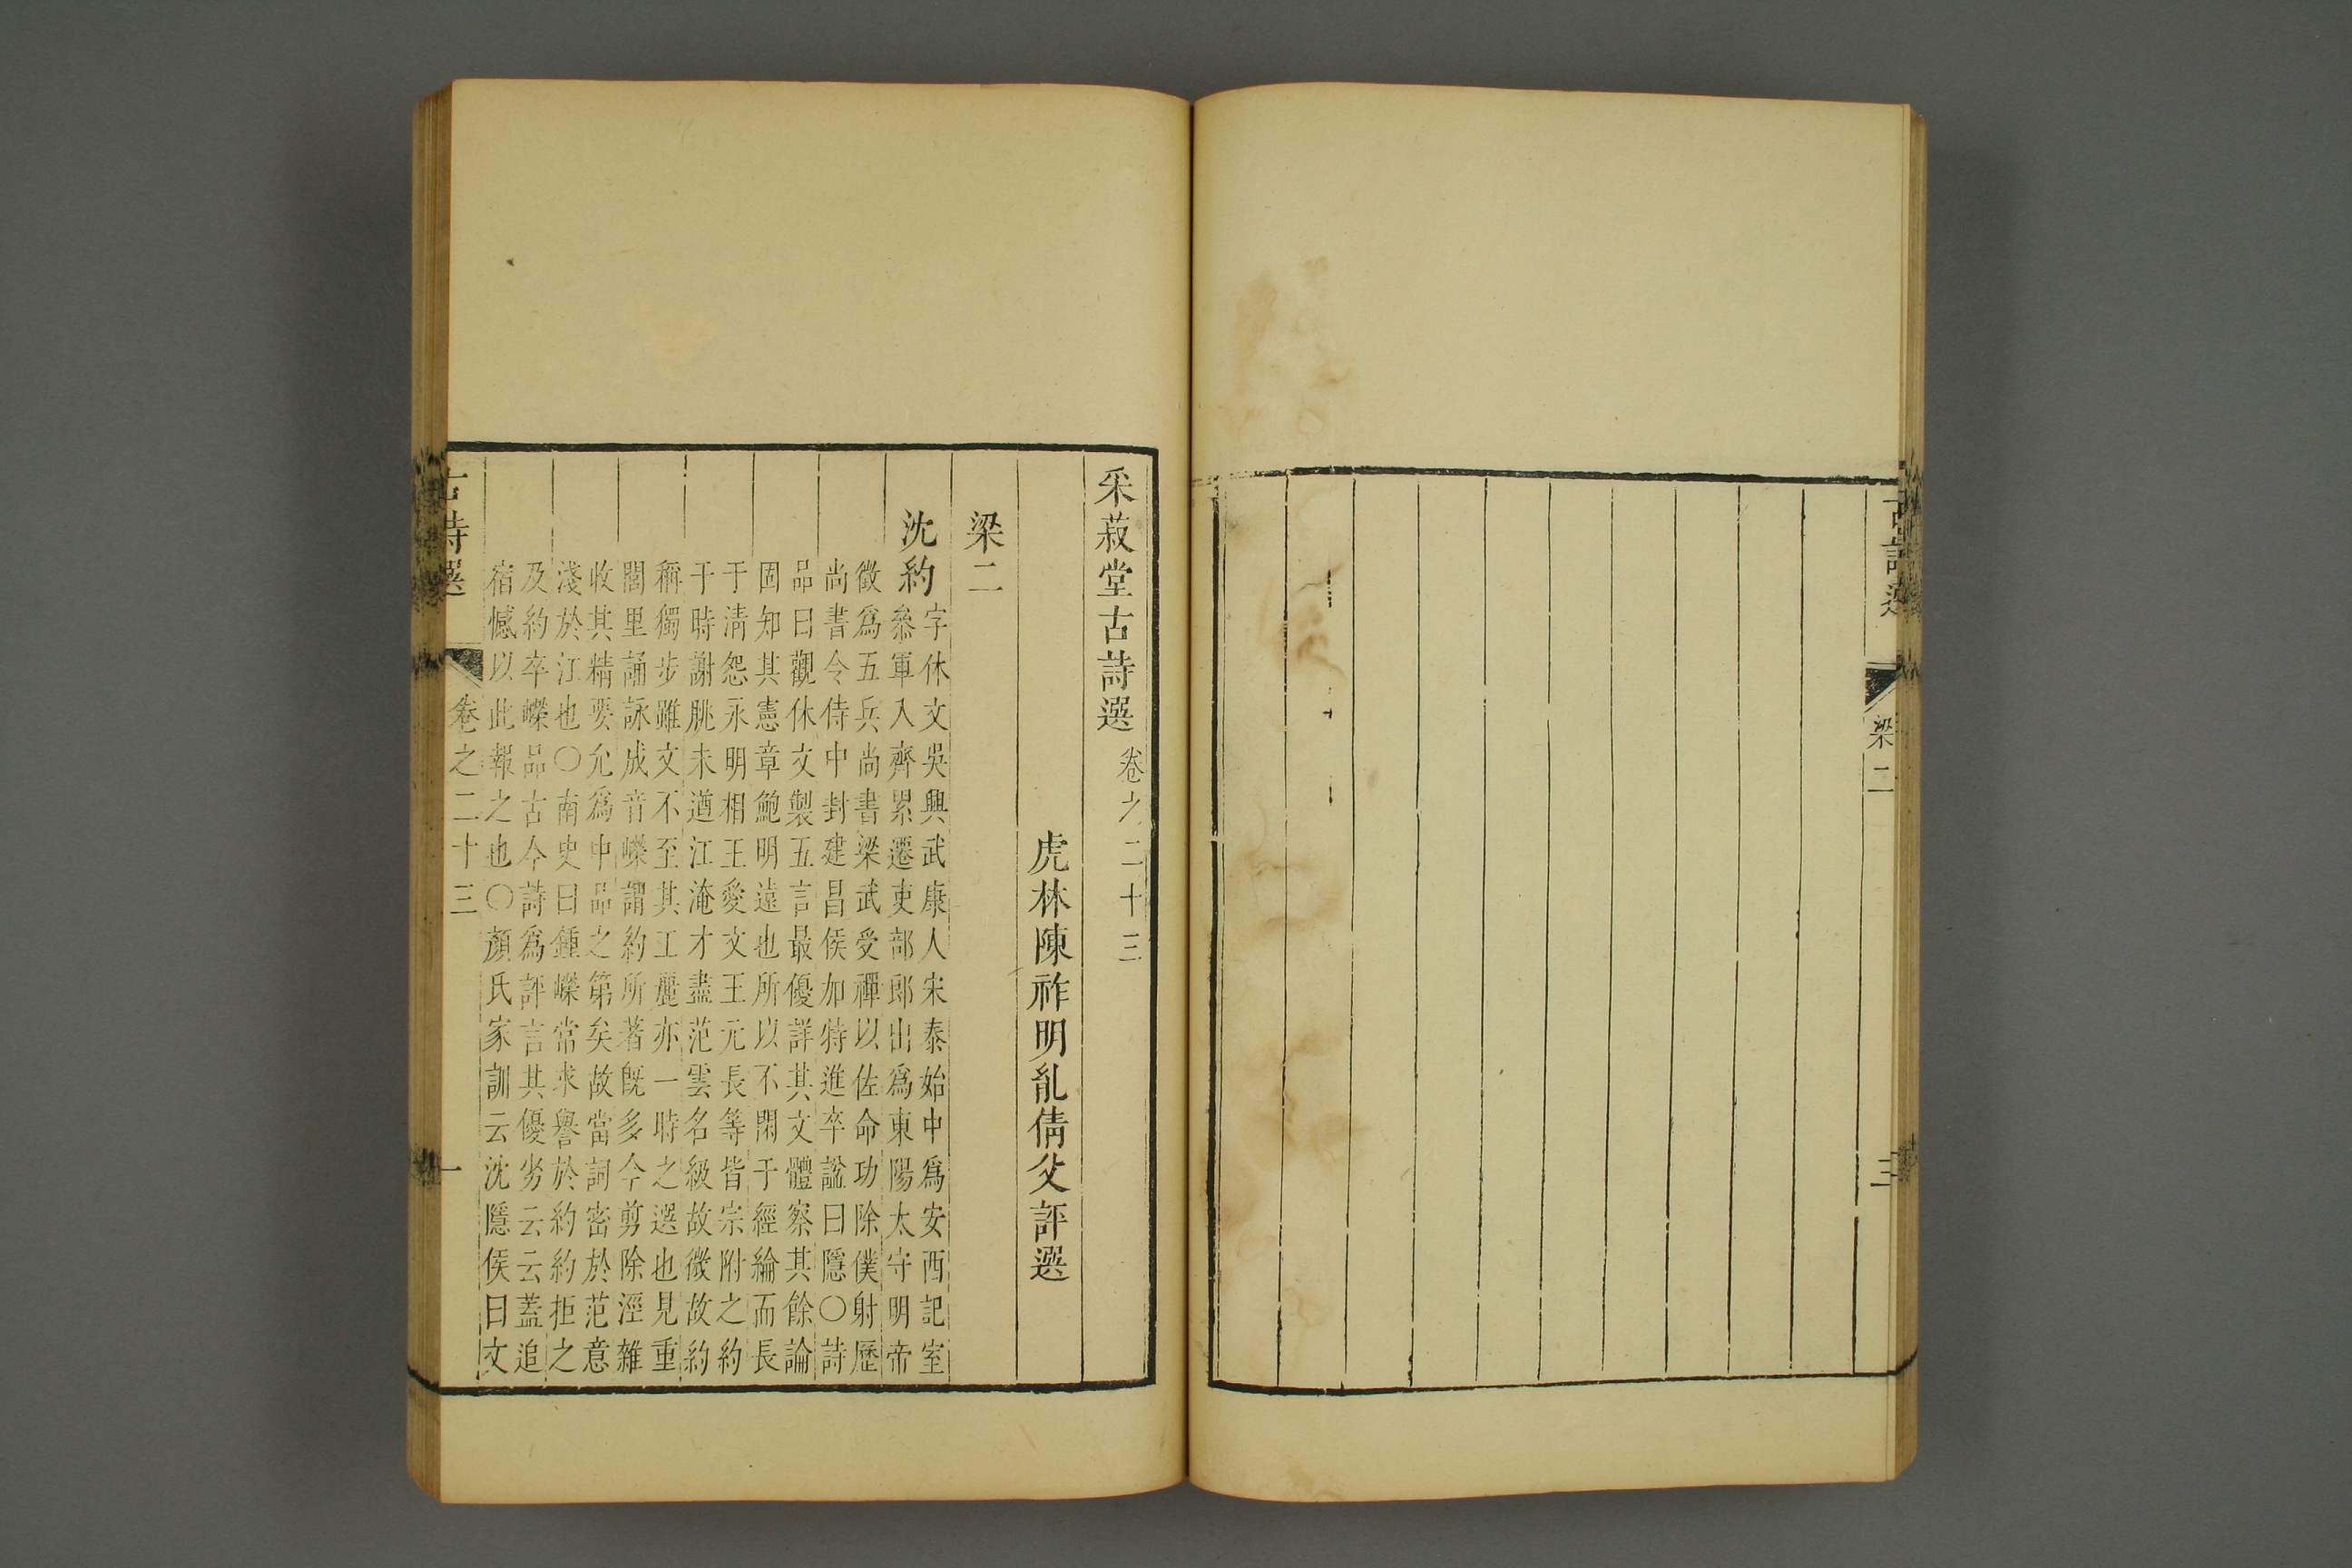 古詩選 梁二 三
采菽堂古詩選 卷之二十三
虎林陳祚明胤倩父評選
梁二
沈約 字休文吳興武康人宋泰始中爲安西記室
參軍入齊累遷吏部郎出爲東陽太守明帝
徵爲五兵尚書梁武受禪以佐命功除僕射歷
尚書令侍中封建昌侯加特進卒諡曰隱〇詩
品曰觀休文製五言最優詳其文體察其餘論
固知其憲章鮑明遠也所以不閑于經綸而長
于清怨永明相王愛文王元長等皆宗附之約
于時謝朓未遒江淹才盡范雲名級故微故約
稱獨步雖文不至其工麗亦一時之選也見重
閭里誦詠成音嶸謂約所著旣多今剪除淫雜
收其精要允爲中品之第矣故當詞密於范意
淺於江也〇南史曰鍾嶸常求譽於約約拒之
及約卒嶸品古今詩爲評言其優劣云云蓋追
宿憾以此報之也〇顏氏家訓云沈隱侯曰文
古詩選 卷之二十三 一